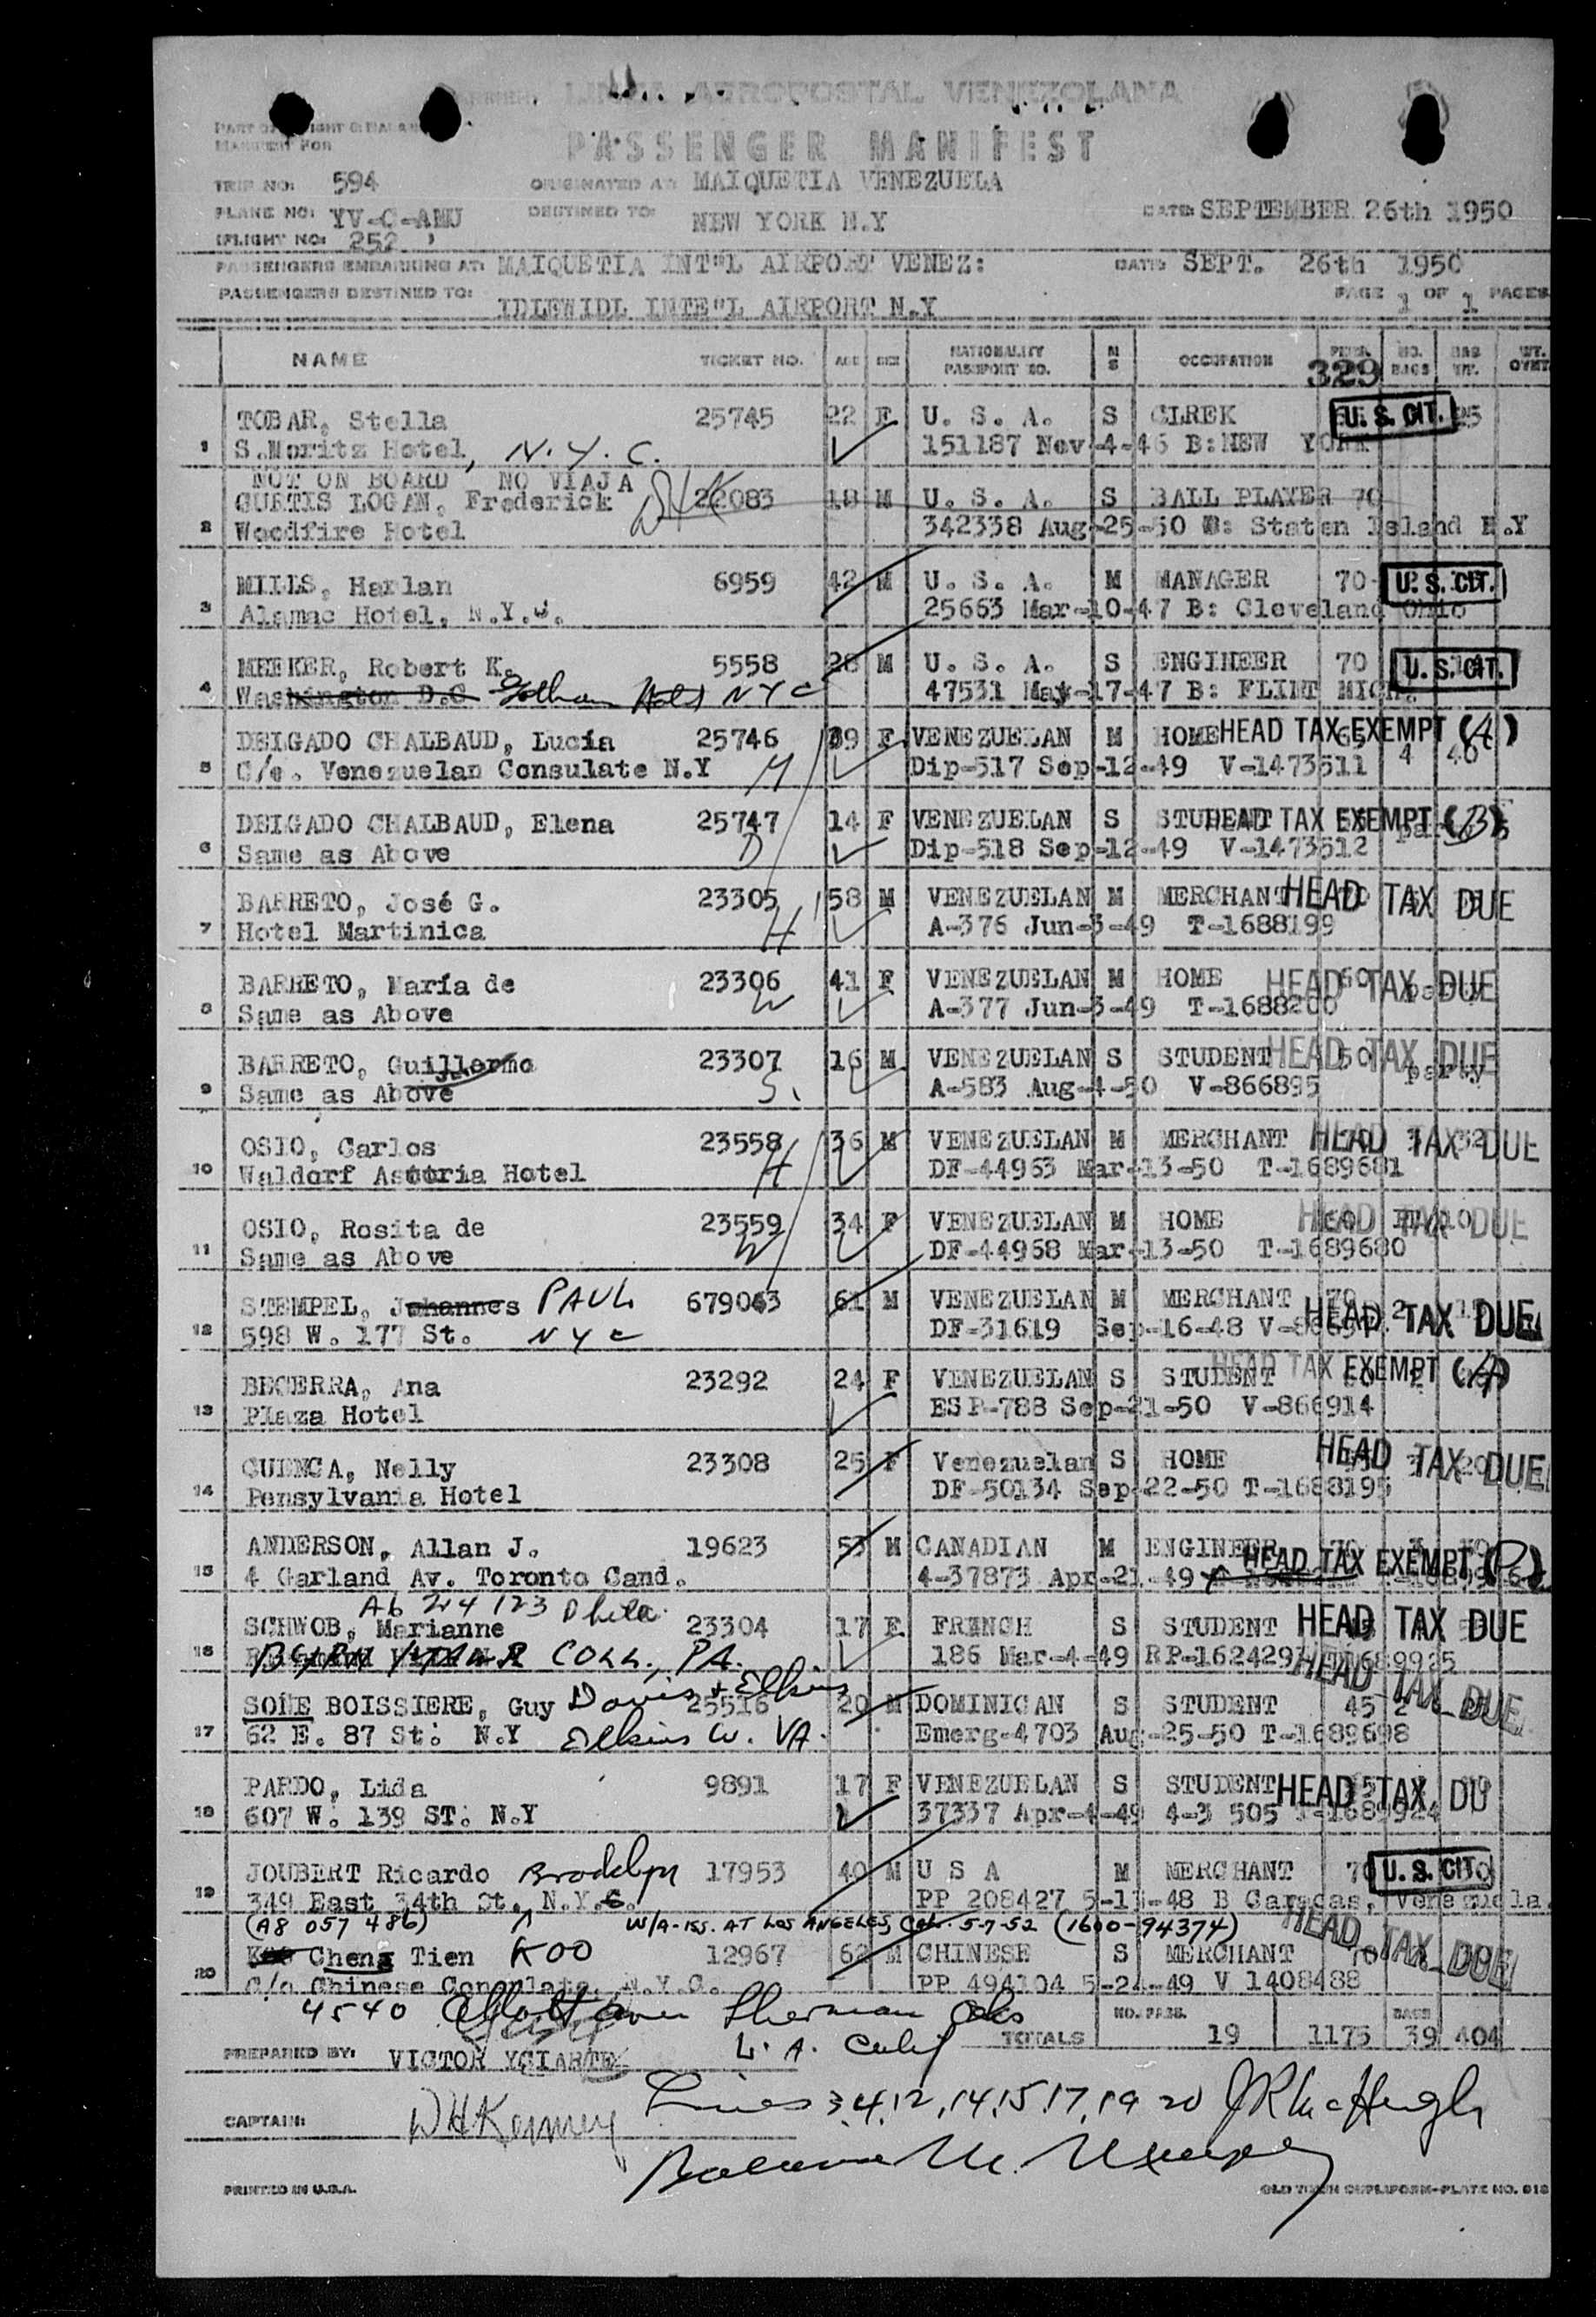 LINEA AEROPOSTAL VENEZOLANA
MANIFEST FOR
PASSENGER MANIFEST
TRIP NO: 594 ORIGINATED AT: MAIQUETIA VENEZUELA
PLANE NO: YV-C-AMU DESTINED TO: NEW YORK N.Y DATE: SEPTEMBER 26th 1950
(FLIGHT NO: 252 )
PASSENGERS EMBARKING AT: MAIQUETIA INT"L AIRPORT VENEZ: DATE: SEPT. 26th 1950
PASSENGERS DESTINED TO: IDLEWIDL INTE"L AIRPORT N.Y PAGE 1 OF 1 PAGES
NAME TICKET NO. AGE SEX NATIONALITY PASSPORT NO. M S OCCUPATION 329 NO. BAGS BAG WT. WT. OVER
TOBAR, Stella 25745 22 F U. S. A. S CLREK U. S. CIT.
1 S.Moritz Hotel, N.Y.C. 151187 Nov-4-46 B:NEW YORK
NOT ON BOARD NO VIAJA
CURTIS LOGAN, Frederick 22083 18 M U. S. A. S BALL PLAYER 70
2 Woodfire Hotel 342338 Aug-25-50 B: Staten Island N.Y
MILLS, Harlan 6959 42 M U. S. A. M MANAGER 70 U. S. CIT.
3 Alamac Hotel, N.Y.C. 25663 Mar-10-47 B: Cleveland Ohio
MEEKER, Robert K. 5558 28 M U. S. A. S ENGINEER 70 U. S. CIT.
4 Washington D.C Gotham Hotel NYC 47531 May-17-47 B: FLINT MICH.
DELGADO CHALBAUD, Lucía 25746 39 F VENEZUELAN M HOME HEAD TAX EXEMPT (A)
5 C/o. Venezuelan Consulate N.Y M Dip-517 Sep-12-49 V-1473511 4 40
DELGADO CHALBAUD, Elena 25747 14 F VENEZUELAN S STUDENT HEAD TAX EXEMPT (B)
6 Same as Above D Dip-518 Sep-12-49 V-1473512
BARRETO, José G. 23305 58 M VENEZUELAN M MERCHANT HEAD TAX DUE
7 Hotel Martinica H A-376 Jun-3-49 T-1688199
BARRETO, María de 23306 41 F VENEZUELAN M HOME 60 HEAD TAX DUE
8 Same as Above W A-377 Jun-3-49 T-1688200
BARRETO, Guillermo 23307 16 M VENEZUELAN S STUDENT 50 HEAD TAX DUE
9 Same as Above S. A-583 Aug-4-50 V-866895
OSIO, Carlos 23558 36 M VENEZUELAN M MERCHANT HEAD TAX DUE
10 Waldorf Astoria Hotel H DF-44963 Mar-13-50 T-1689681
OSIO, Rosita de 23559 34 F VENEZUELAN M HOME 60 HEAD TAX DUE
11 Same as Above W DF-44968 Mar-13-50 T-1689680
STEMPEL, Johannes PAUL 679043 61 M VENEZUELAN M MERCHANT 70 HEAD TAX DUE
12 598 W. 177 St. NYC DF-31619 Sep-16-48
BECERRA, Ana 23292 24 F VENEZUELAN S STUDENT HEAD TAX EXEMPT (A)
13 Plaza Hotel ESP-788 Sep-21-50 V-866914
CUENCA, Nelly 23308 25 F Venezuelan S HOME HEAD TAX DUE
14 Pensylvania Hotel DF-50134 Sep-22-50 T-1688195
ANDERSON, Allan J. 19623 53 M CANADIAN M ENGINEER HEAD TAX EXEMPT
15 4 Garland Av. Toronto Cand. 4-37873 Apr-21-49
A6 244 123 Phila.
SCHWOB, Marianne 23304 17 F FRENCH S STUDENT HEAD TAX DUE
16 BRYN MAWR COLL., PA. 186 Mar-4-49 RP-162429 T-1689925
SOME BOISSIERE, Guy Davis + Elkins 25516 20 M DOMINICAN S STUDENT 45 2 HEAD TAX DUE
17 62 E. 87 St: N.Y Elkins W. VA. Emerg-4703 Aug-25-50 T-1689698
PARDO, Lida 9891 17 F VENEZUELAN S STUDENT HEAD TAX DU
18 607 W. 139 ST: N.Y 37337 Apr-4-49 4-3 505 T-1689924
JOUBERT Ricardo Brooklyn 17953 40 M U S A M MERCHANT 70 U. S. CIT.
19 349 East 34th St, N.Y.C. PP 208427 5-11-48 B Caracas, Venezuela.
(A8 057 486) W/A-ISS. AT LOS ANGELES, Cal. 5-7-52 (1600-94374)
Koo Cheng Tien KOO 12967 62 M CHINESE S MERCHANT 70 HEAD TAX DUE
20 C/o Chinese Consulate, N.Y.C. PP 494104 5-24-49 V 1408488
4540 Sherman Oks
L. A. Calif TOTALS NO. PASS. 19 1175 BAGS 39 404
PREPARED BY: VICTOR YCIARTE
Lines 3,4,12,14,15,17,19 20 JR McHugh
CAPTAIN: WHKenney
PRINTED IN U.S.A. OLD TOWN DUPLIFORM-PLATE NO. 618